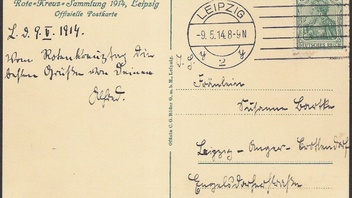 Rote-Kreuz-Sammlung 1914, Leipzig
Offizielle Postkarte
L. d. 9. V. 1914.
Vom Rotenkreuztag die
besten Grüße von Deinem
Alfred.
Offiz. C. G. Röder G. m. b. H., Leipzig.
LEIPZIG
-9.5.14.8-9N
2
DEUTSCHES REICH
Fräulein
Susanne
Leipzig-Anger-Crottendorf
Engelsdorferstraße